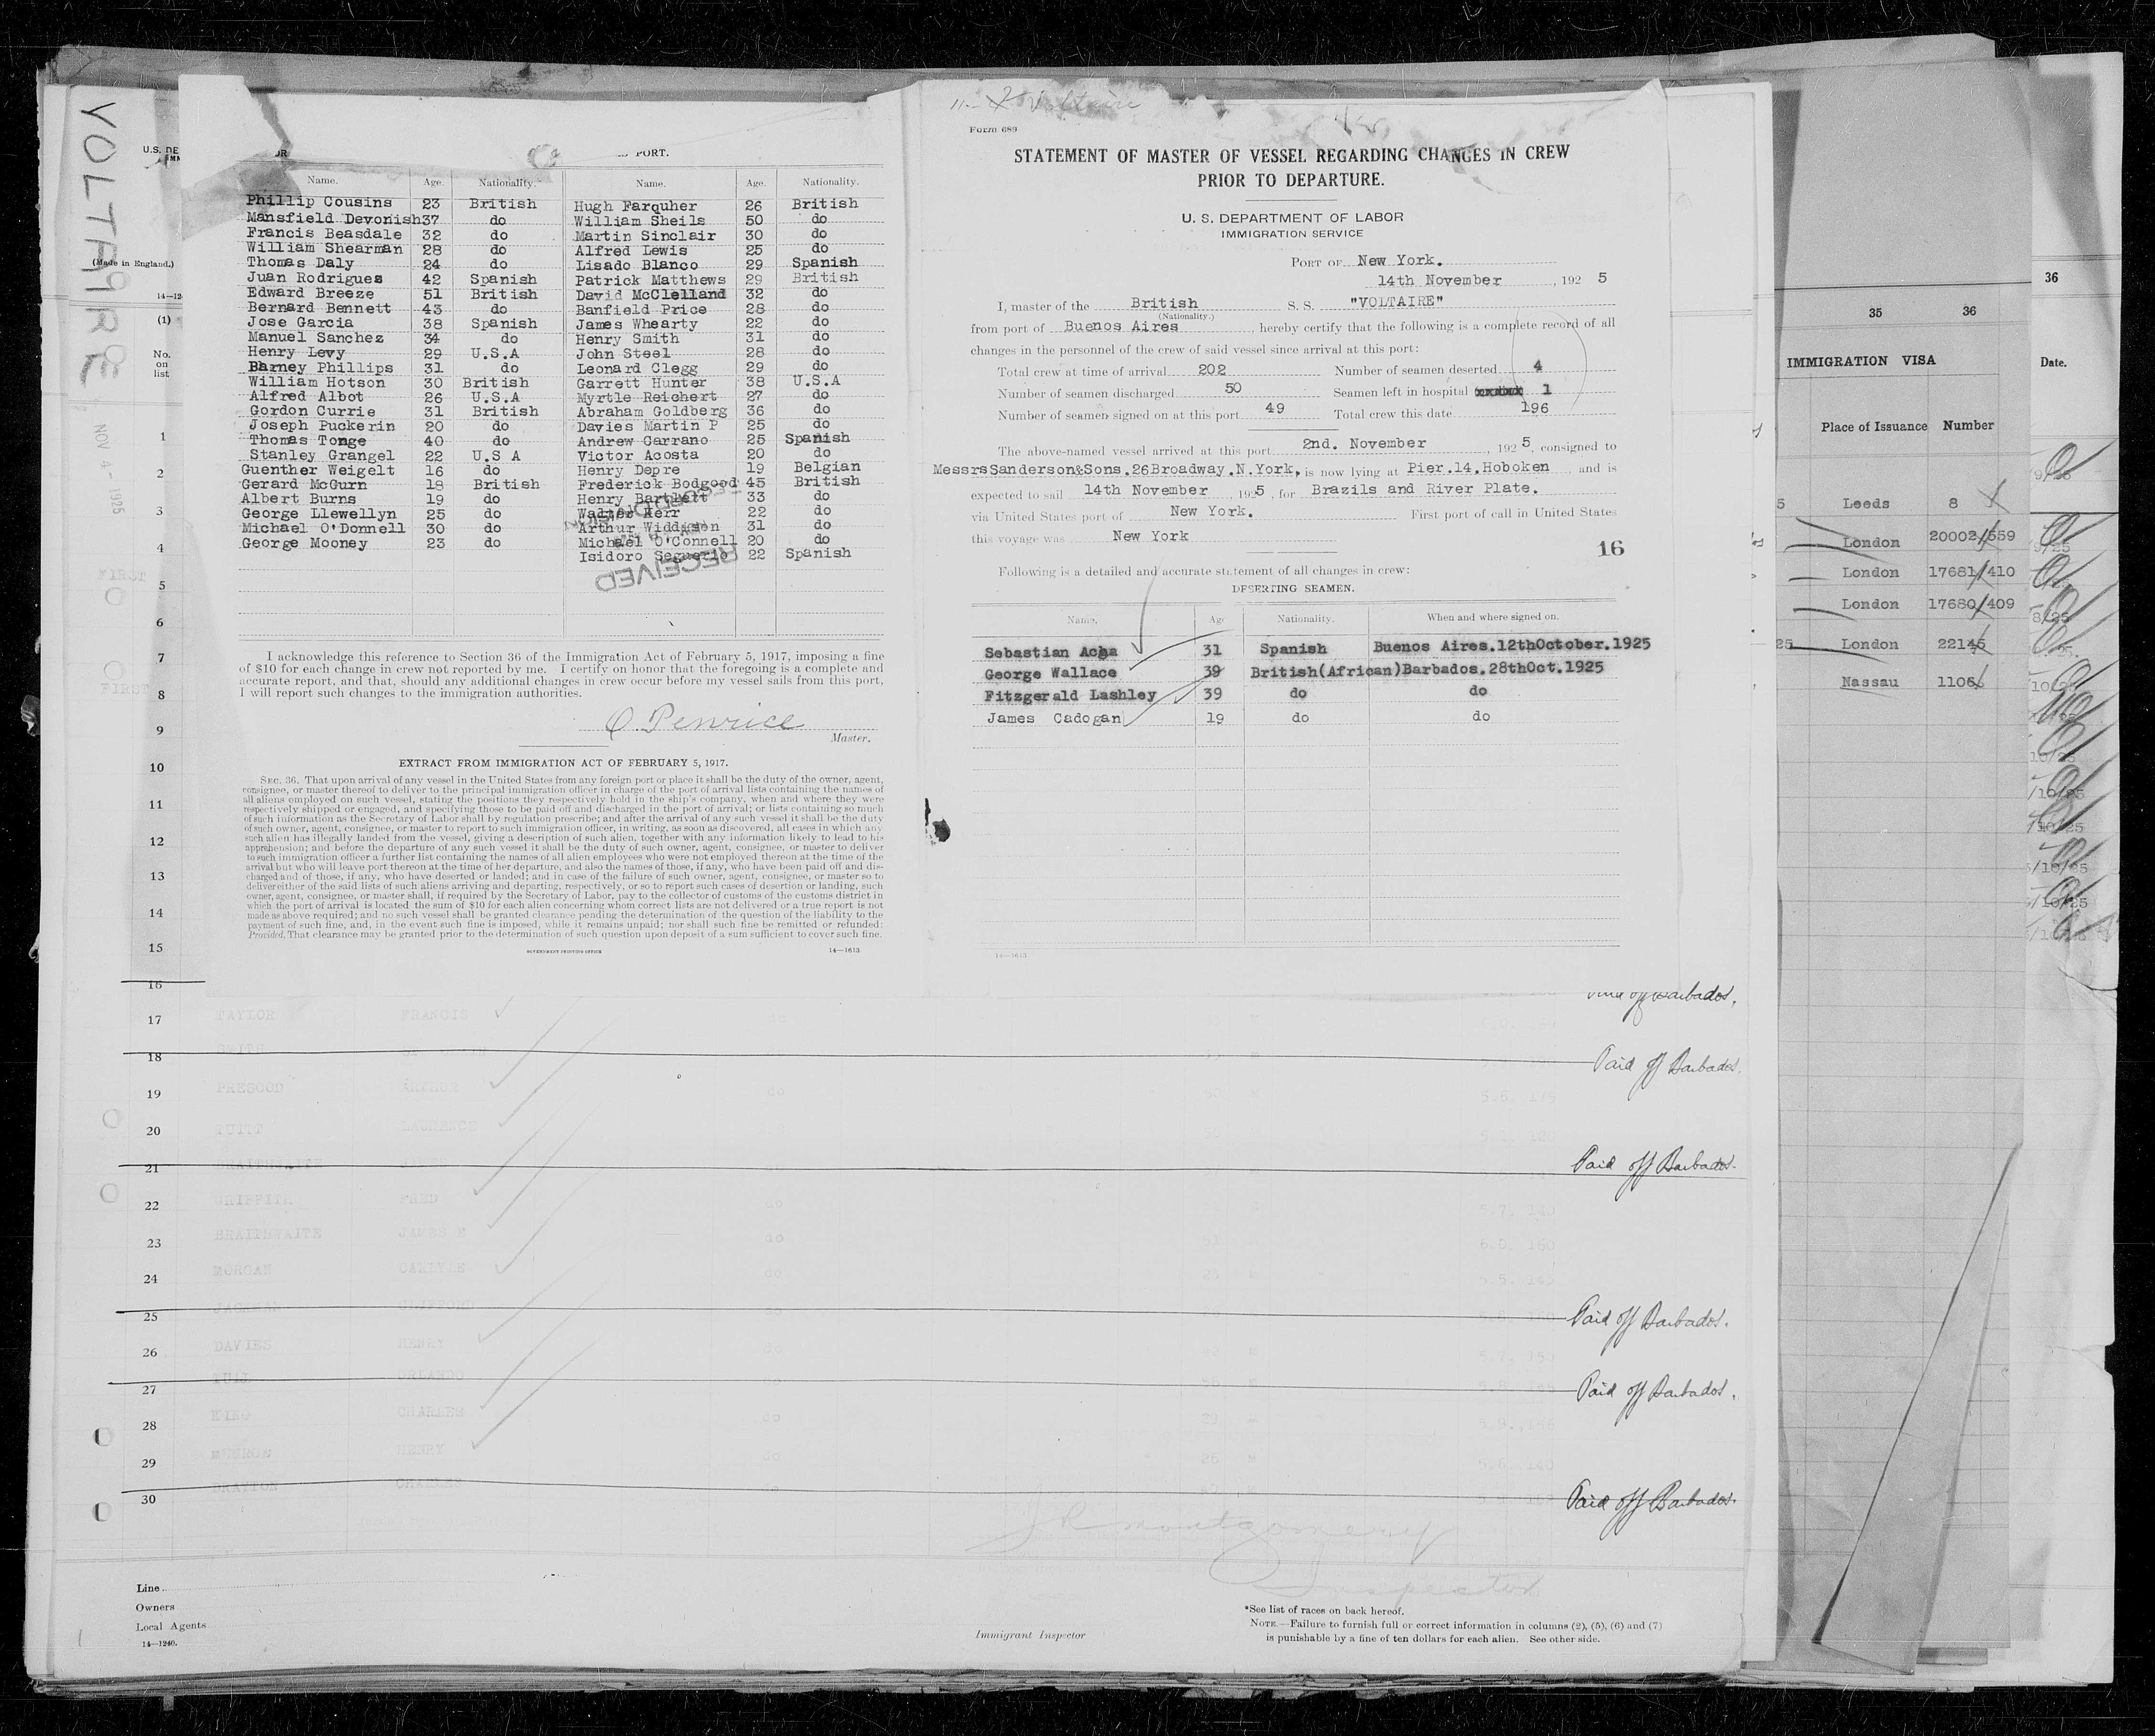 VOLTAIRE
U.S. DE
(Made in England.)
(1)
No.
on
list
NOV 4 - 1925
PORT.
Name. Age. Nationality. Name. Age. Nationality.
Phillip Cousins 23 British Hugh Farquher 26 British
Mansfield Devonish 37 do William Sheils 50 do
Francis Beasdale 32 do Martin Sinclair 30 do
William Shearman 28 do Alfred Lewis 25 do
Thomas Daly 24 do Lisado Blanco 29 Spanish
Juan Rodrigues 42 Spanish Patrick Matthews 29 British
Edward Breeze 51 British David McClelland 32 do
Bernard Bennett 43 do Banfield Price 28 do
Jose Garcia 38 Spanish James Whearty 22 do
Manuel Sanchez 34 do Henry Smith 31 do
Henry Levy 29 U.S.A John Steel 28 do
Barney Phillips 31 do Leonard Clegg 29 do
William Hotson 30 British Garrett Hunter 38 U.S.A
Alfred Albot 26 U.S.A Myrtle Reichert 27 do
Gordon Currie 31 British Abraham Goldberg 36 do
Joseph Puckerin 20 do Davies Martin P 25 do
Thomas Tonge 40 do Andrew Carrano 25 Spanish
Stanley Grangel 22 U.S A Victor Acosta 20 do
Guenther Weigelt 16 do Henry Depre 19 Belgian
Gerard McGurn 18 British Frederick Bodgood 45 British
Albert Burns 19 do Henry Bartlett 33 do
George Llewellyn 25 do Walter Kerr 22 do
Michael O'Donnell 30 do Arthur Widdisen 31 do
George Mooney 23 do Michael O'Connell 20 do
Isidoro 22 Spanish
RECEIVED
I acknowledge this reference to Section 36 of the Immigration Act of February 5, 1917, imposing a fine
of $10 for each change in crew not reported by me. I certify on honor that the foregoing is a complete and
accurate report, and that, should any additional changes in crew occur before my vessel sails from this port,
I will report such changes to the immigration authorities.
O. Penrice
Master.
EXTRACT FROM IMMIGRATION ACT OF FEBRUARY 5, 1917.
SEC. 36. That upon arrival of any vessel in the United States from any foreign port or place it shall be the duty of the owner, agent,
consignee, or master thereof to deliver to the principal immigration officer in charge of the port of arrival lists containing the names of
all aliens employed on such vessel, stating the positions they respectively hold in the ship's company, when and where they were
respectively shipped or engaged, and specifying those to be paid off and discharged in the port of arrival; or lists containing so much
of such information as the Secretary of Labor shall by regulation prescribe; and after the arrival of any such vessel it shall be the duty
of such owner, agent, consignee, or master to report to such immigration officer, in writing, as soon as discovered, all cases in which any
such alien has illegally landed from the vessel, giving a description of such alien, together with any information likely to lead to his
apprehension; and before the departure of any such vessel it shall be the duty of such owner, agent, consignee, or master to deliver
to such immigration officer a further list containing the names of all alien employees who were not employed thereon at the time of the
arrival but who will leave port thereon at the time of her departure, and also the names of those, if any, who have been paid off and dis-
charged and of those, if any, who have deserted or landed; and in case of the failure of such owner, agent, consignee, or master so to
deliver either of the said lists of such aliens arriving and departing, respectively, or so to report such cases of desertion or landing, such
owner, agent, consignee, or master shall, if required by the Secretary of Labor, pay to the collector of customs of the customs district in
which the port of arrival is located the sum of $10 for each alien concerning whom correct lists are not delivered or a true report is not
made as above required; and no such vessel shall be granted clearance pending the determination of the question of the liability to the
payment of such fine, and, in the event such fine is imposed, while it remains unpaid; nor shall such fine be remitted or refunded:
Provided, That clearance may be granted prior to the determination of such question upon deposit of a sum sufficient to cover such fine.
GOVERNMENT PRINTING OFFICE 14—1613
Voltaire
Form 689
STATEMENT OF MASTER OF VESSEL REGARDING CHANGES IN CREW
PRIOR TO DEPARTURE.
U. S. DEPARTMENT OF LABOR
IMMIGRATION SERVICE
PORT OF New York.
14th November, 192 5
I, master of the British S. S. "VOLTAIRE"
(Nationality.)
from port of Buenos Aires, hereby certify that the following is a complete record of all
changes in the personnel of the crew of said vessel since arrival at this port:
Total crew at time of arrival 202 Number of seamen deserted 4
Number of seamen discharged 50 Seamen left in hospital 1
Number of seamen signed on at this port 49 Total crew this date 196
The above-named vessel arrived at this port 2nd. November, 192 5, consigned to
Messrs Sanderson&Sons.26Broadway.N.York, is now lying at Pier.14.Hoboken, and is
expected to sail 14th November, 1925, for Brazils and River Plate.
via United States port of New York. First port of call in United States
this voyage was New York
16
Following is a detailed and accurate statement of all changes in crew:
DESERTING SEAMEN.
Name. Age Nationality. When and where signed on.
Sebastian Acha 31 Spanish Buenos Aires.12thOctober.1925
George Wallace 39 British(African)Barbados.28thOct.1925
Fitzgerald Lashley 39 do do
James Cadogan 19 do do
14—1613
35 36
IMMIGRATION VISA
Place of Issuance Number
5 Leeds 8
London 20002/559
London 17681/410
London 17680/409
25 London 22145
Nassau 1106
36
Date.
1
2
3
4
5
6
7
8
9
10
11
12
13
14
15
16 Paid off Barbados.
17 TAYLOR FRANCIS
18 SMITH Paid off Barbados.
19 PRESCOD ARTHUR do
20 TUITT LAURENCE
21 BRAITHWAITE Paid off Barbados.
22 GRIFFITH FRED do 5.7. 140
23 BRAITHWAITE JAMES E do 6.0. 160
24 MORGAN CARLYLE do
25 Paid off Barbados.
26 DAVIES HENRY do
27 ORLANDO Paid off Barbados.
28 KING CHARLES do
29 HENRY do 26
30 DRAYTON CHARLES Paid off Barbados.
J R Montgomery
Inspector
Line
Owners
Local Agents
14—1240.
Immigrant Inspector
*See list of races on back hereof.
NOTE.—Failure to furnish full or correct information in columns (2), (5), (6) and (7)
is punishable by a fine of ten dollars for each alien. See other side.